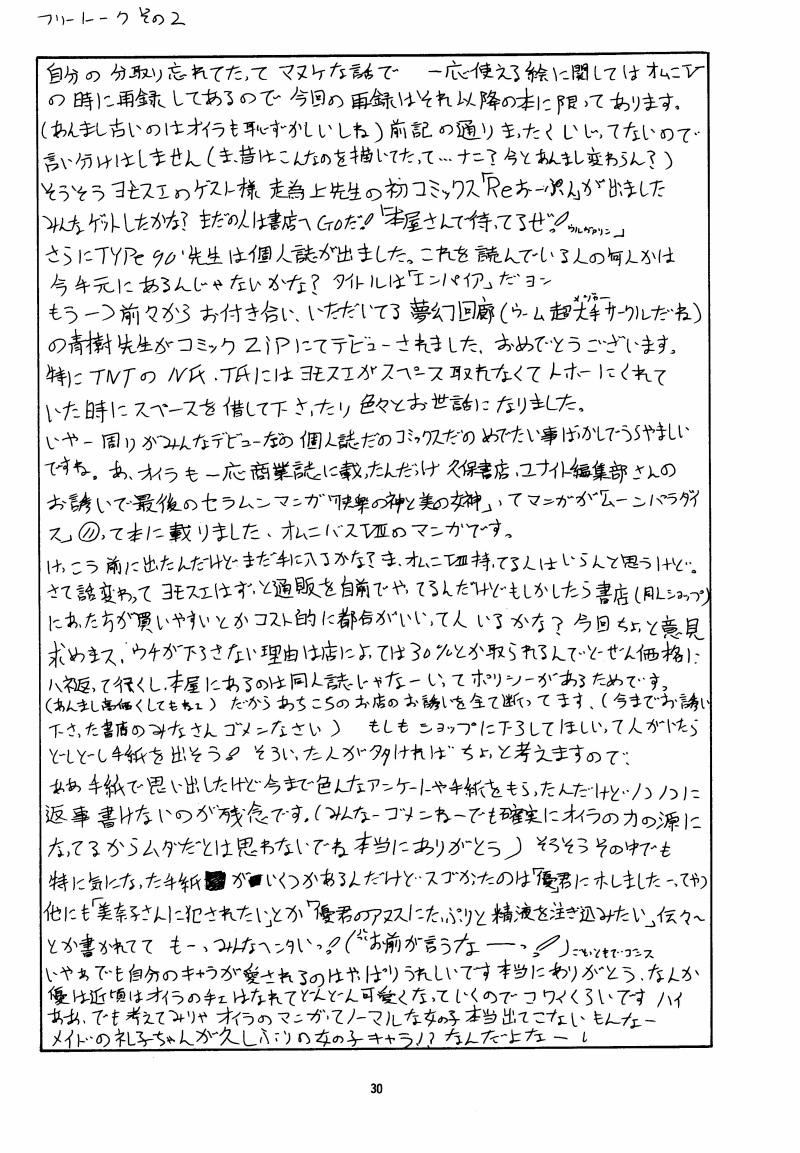 フリートーク その2
自分の分取り忘れてたってマヌケな話で 一応使える絵に関してはオムニⅣ
の時に再録してあるので今回の再録はそれ以降の本に限ってあります。
(あんまし古いのはオイラも恥ずかしいしね) 前記の通りまったくいじってないので
言い分けはしません(ま、昔はこんなのを描いてたって…ナニ?今とあんまし変わらん?)
そうそうヨモスエのゲスト様 走為上先生の初コミックス「Reおーぷん」が出ました
みんなゲットしたかな? まだの人は書店へGoだ!「本屋さんで待ってるぜ!ウルヴァリン」
さらにTYPe90'先生は個人誌が出ました。これを読んでいる人の何人かは
今手元にあるんじゃないかな? タイトルは「エンパイア」だヨン
もう一つ前々からお付き合いいただいてる夢幻回廊(ウーム超大手サークルだね)
の青樹先生がコミックZiPにてデビューされました、おめでとうございます。
特にTNTのNF、TFにはヨモスエがスペース取れなくてトホーにくれて
いた時にスペースを借して下さったり色々とお世話になりました。
いやー周りがみんなデビューだの個人誌だのコミックスだのめでたい事ばかしでうらやましい
ですね。あ、オイラも一応商業誌に載ったんだっけ 久保書店、ユナイト編集部さんの
お誘いで最後のセラムンマンガ「快楽の神と美の女神」ってマンガが「ムーンパラダイ
ス」⑪って本に載りました、オムニバスⅧのマンガです。
けっこう前に出たんだけどまだ手に入るかな?ま、オムニⅧ持ってる人はいらんと思うけど。
さて話変わってヨモスエはずっと通販を自前でやってるんだけどもしかしたら書店(同人ショップ)
にあった方が買いやすいとかコスト的に都合がいいって人いるかな? 今回ちょっと意見
求めまス、ウチが下ろさない理由は店によっては30%とか取られるんでとーぜん価格に
ハネ返って行くし、本屋にあるのは同人誌じゃなーいってポリシーがあるためです。
(あんまし高価くしてもねェ) だからあちこちのお店のお誘いを全て断ってます、(今までお誘い
下さった書店のみなさんゴメンなさい) もしもショップに下ろしてほしいって人がいたら
どしどし手紙を出そう! そういった人が多ければちょっと考えますので、
ああ手紙で思い出したけど今まで色んなアンケートや手紙をもらったんだけどノコノコに
返事書けないのが残念です。(みんなーゴメンねーでも確実にオイラの力の源に
なってるからムダだとは思わないでね 本当にありがとう) そうそうその中でも
特に気になった手紙がいくつかあるんだけどスゴかったのは「優君にホレました」ってやつ
他にも「美奈子さんに犯されたい」とか「優君のアヌスにたっぷりと精液を注ぎ込みたい」伝々〜
とか書かれてて もーっみんなヘンタいっ!(お前が言うなーっ!)
いやぁでも自分のキャラが愛されるのはやっぱりうれしいです本当にありがとう、なんか
優は近頃はオイラのチェはなれてどんどん可愛くなっていくのでコワイくらいです ハイ
ああ、でも考えてみりゃオイラのマンガってノーマルな女の子本当出てこないもんなー
メイドの礼子ちゃんが久しぶりの女の子キャラ!? なんだよなー
30